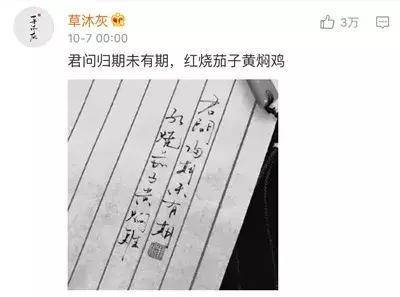 草沐灰
10-7 00:00
3万
君问归期未有期，红烧茄子黄焖鸡
君問歸期未有期
红烧茄子黄焖雞